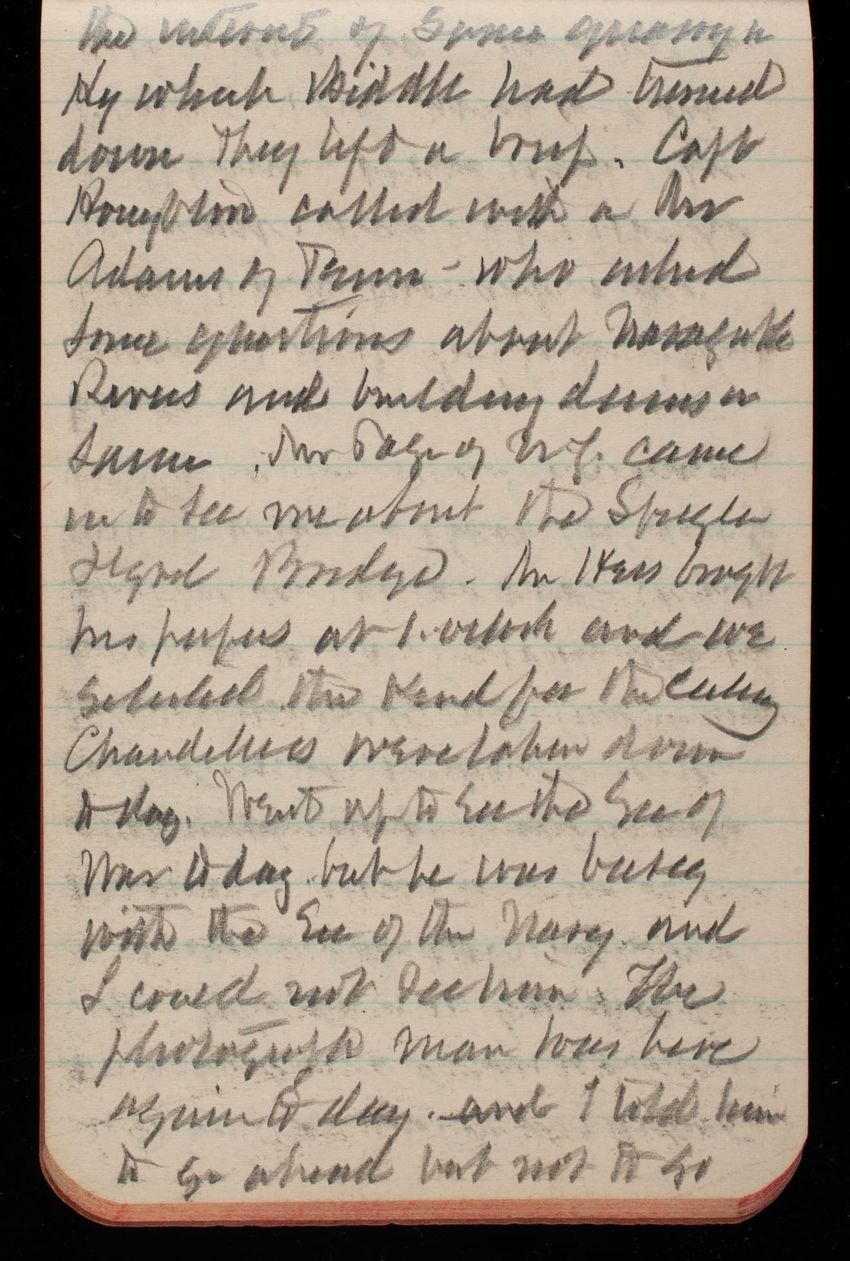 the interest of some
Ky which Biddle had turned
down They left a brief. Capt
called with a Mr
Adams of Tenn - who asked
some questions about Navigable
Rivers and building dams on
same. Mr Page of N.Y. came
in to see me about the
Bridge. Mr Hess brought
his papers at 1. oclock and we
selected the kind for the ceiling
Chandeliers were taken down
to day. Went up to see the Sec of
War to day but he was busy
with the Sec of the Navy. and
I could not see him. The
photograph man was here
again to day. and I told him
to go ahead but not to go